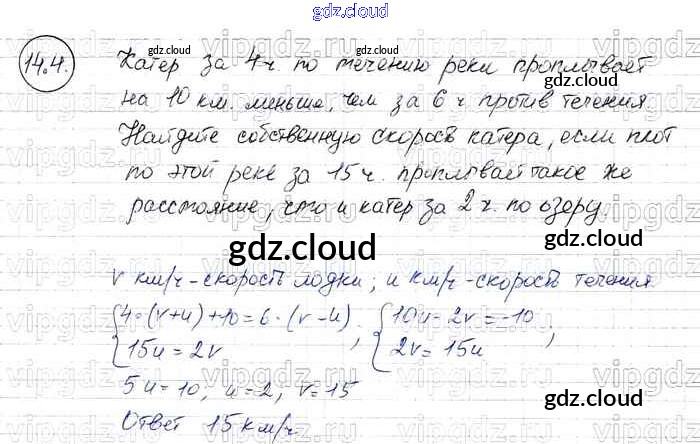 gdz.cloud
14.4. Катер за 4 ч по течению реки проплывает
на 10 км. меньше, чем за 6 ч против течения.
Найдите собственную скорость катера, если плот
по этой реке за 15 ч. проплывает такое же
расстояние, что и катер за 2 ч. по озеру.
gdz.cloud
v км/ч - скорость лодки; u км/ч - скорость течения
{4·(v+u)+10=6·(v-u) ; {10u-2v=-10 ,
{15u=2v {2v=15u
5u=10, u=2, v=15
Ответ 15 км/ч